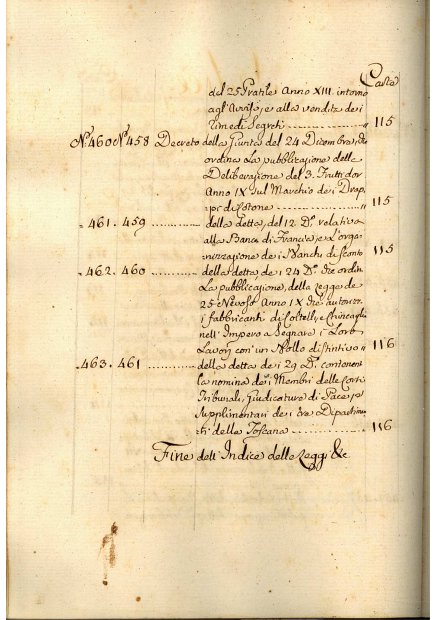 Carte
del 25 Pratile Anno XIII. intorno
agl' Avvisi, e alla vendita dei
Rimedi Segreti ............ " 115
N.º 460 N.º 458 Decreto della Giunta del 24 Dicembre, che
ordina La pubblicazione della
Deliberazione del 3. Fruttidor.
Anno IX sul Marchio dei Drap-
pi di Cotone .................. " 115
" 461. 459 ............ della detta, del 12 D.º relativa
alla Banca di Francia, e L'orga-
nizzazione dei Banchi di Sconto 115
" 462. 460 ............ della detta dei 24 D.º che ordin
La pubblicazione, della Legge de'
25 Nevoso Anno IX che autorizz
i fabbricanti di Coltelli, e Chincagli
nell' Impero a Segnare i Loro
Lavori con un Bollo distintivo " 116
" 463. 461 ............ della detta dei 29 D.º contenent
la nomina dei Membri delle Corti
Tribunali, Giudicature di Pace, e
Supplimentari dei tre Dipartim.
ti della Toscana ............ " 116
Fine dell' Indice delle Leggi &c